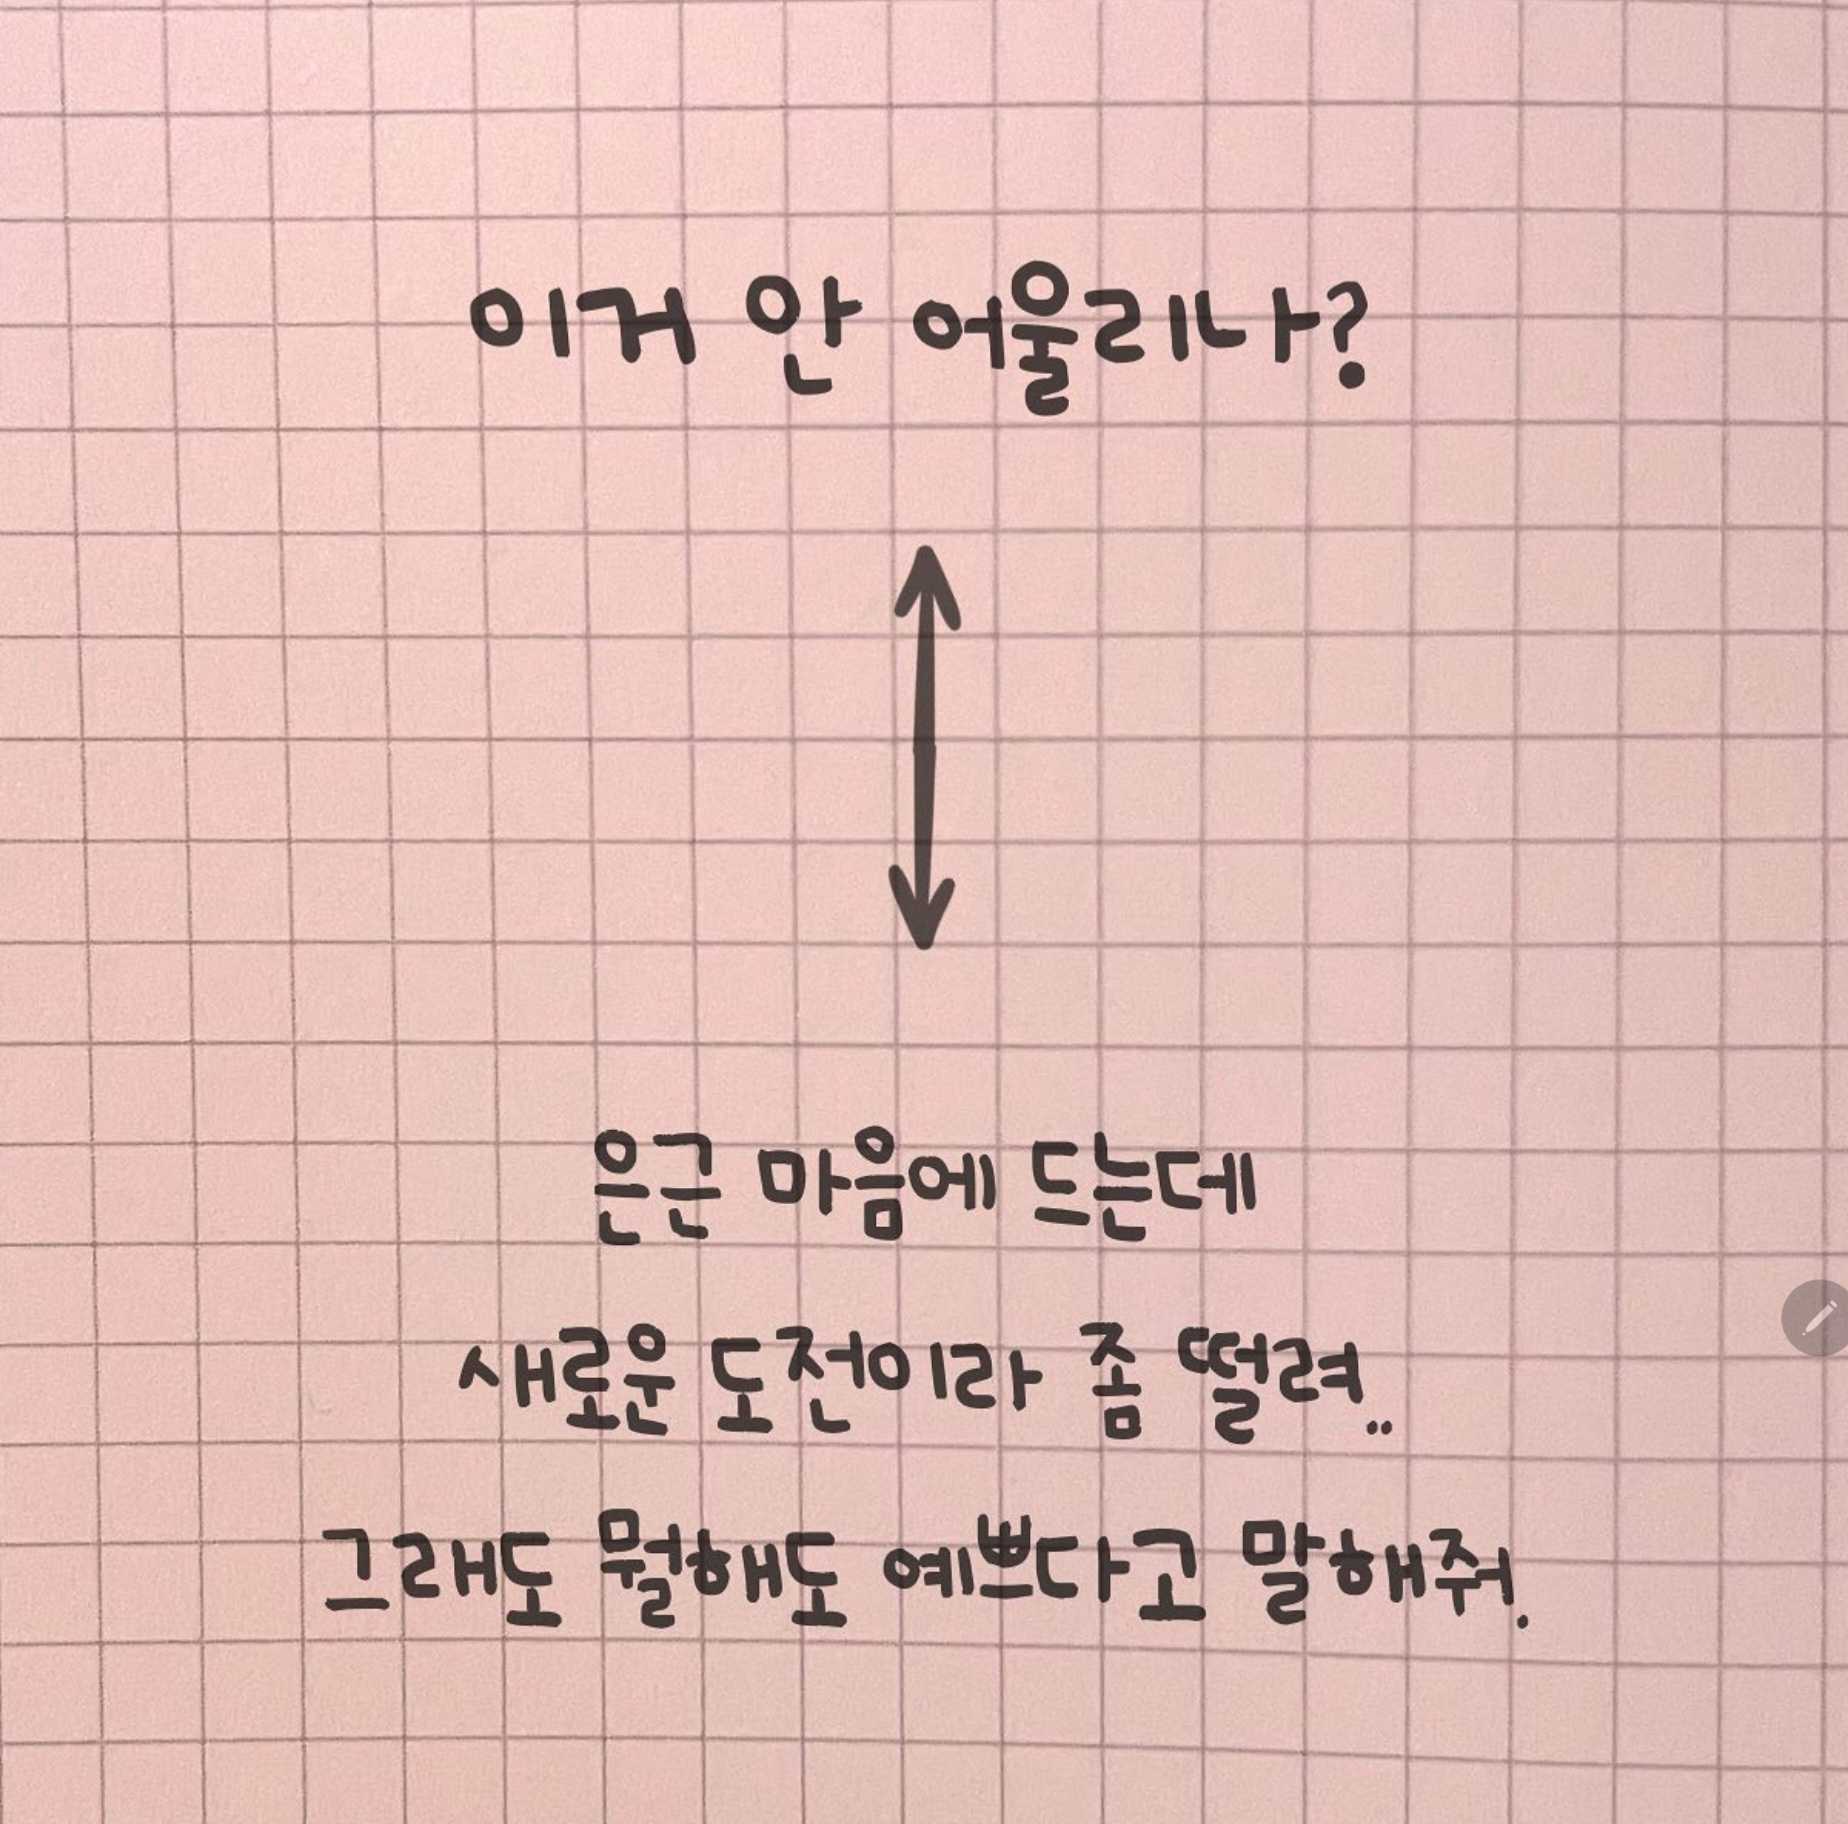 이거 안 어울리나?
은근 마음에 드는데
새로운 도전이라 좀 떨려..
그래도 뭘해도 예쁘다고 말해줘.